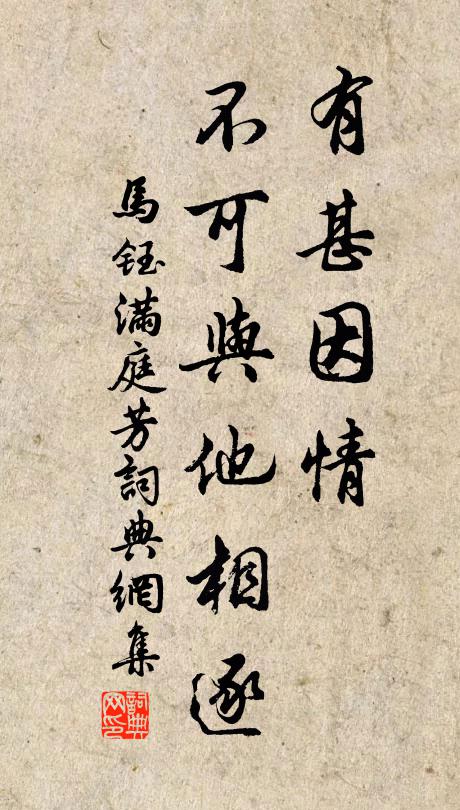 有甚因情
不可與他相逐
馬鈺滿庭芳詞典網集
詞典网印